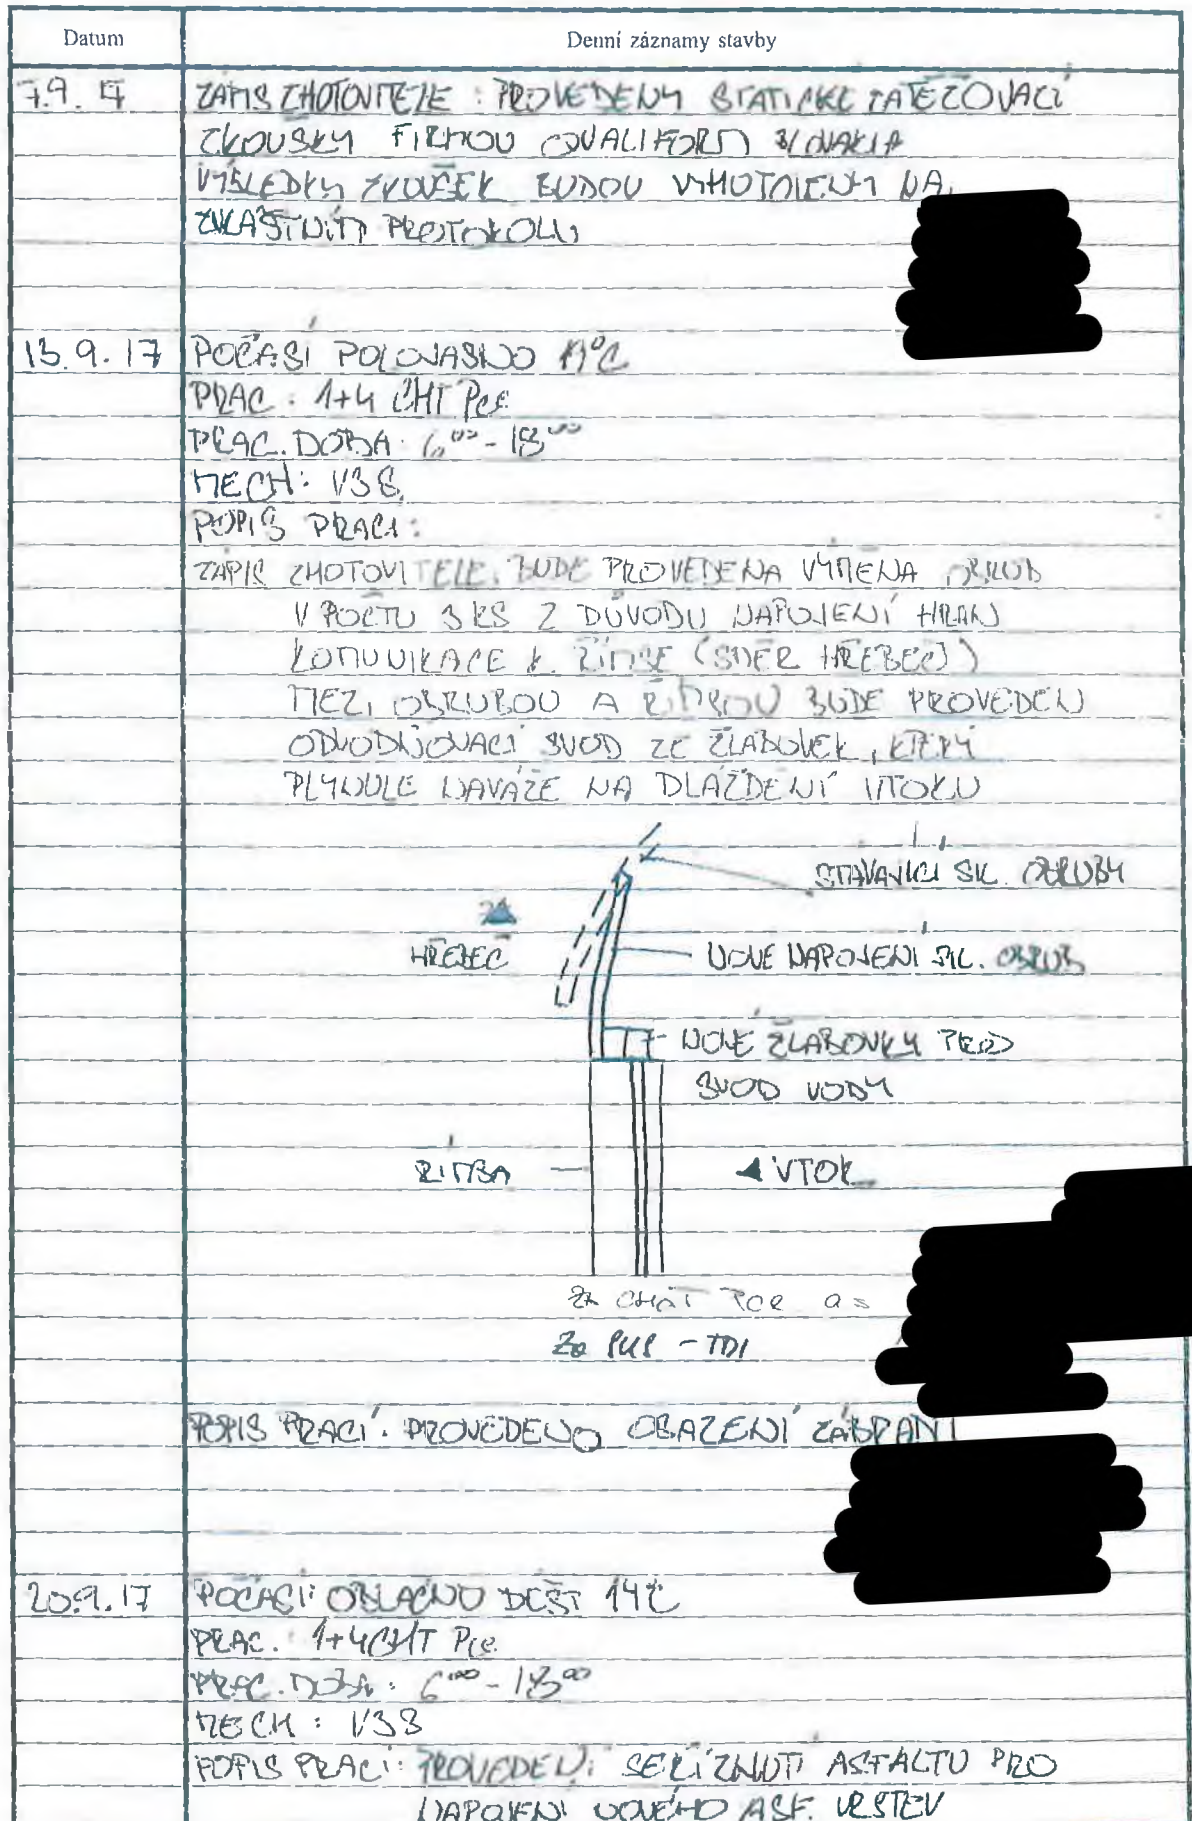 Datum
Denní záznamy stavby
7.9. 17
ZÁPIS ZHOTOVITELE : PROVEDENY STATICKÉ ZATĚŽOVACÍ
ZKOUŠKY FIRMOU QUALIFORM SLOVAKIA
VÝSLEDKY ZKOUŠEK BUDOU VYHOTOVENY NA
ZVLÁŠTNÍM PROTOKOLU
13.9.17
POČASÍ POLOJASNO °C
PRAC : 1+4 CHT Pce
PRAC. DOBA : 6⁰⁰ - 18⁰⁰
MECH : V3S
POPIS PRACÍ :
ZÁPIS ZHOTOVITELE. BUDE PROVEDENA VÝMĚNA OBRUB
V POČTU 3 KS Z DŮVODU NAPOJENÍ HRAN
KOMUNIKACE K ŘÍMSE (SMĚR HŘEBEČ)
MEZI OBRUBOU A ŘÍMSOU BUDE PROVEDEN
ODVODŇOVACÍ SVOD ZE ŽLABOVEK, KTERÝ
PLYNULE NAVÁŽE NA DLÁŽDĚNÍ VTOKU
STÁVAJÍCÍ SIL. OBRUBY
HŘEBEČ
NOVÉ NAPOJENÍ SIL. OBRUB
NOVÉ ŽLABOVKY PRO
SVOD VODY
ŘÍMSA
VTOK
Za CHÁT PCE a s
Za - TDI
POPIS PRACÍ : PROVEDENO OSAZENÍ ZÁBRAN
20.9.17
POČASÍ: OBLAČNO DÉŠŤ 14°C
PRAC. 1+4 CHT Pce
PRAC. DOBA : 6⁰⁰ - 18⁰⁰
MECH : V3S
POPIS PRACÍ : PROVEDENÍ SEŘÍZNUTÍ ASFALTU PRO
NAPOJENÍ NOVÉHO ASF. VRSTEV